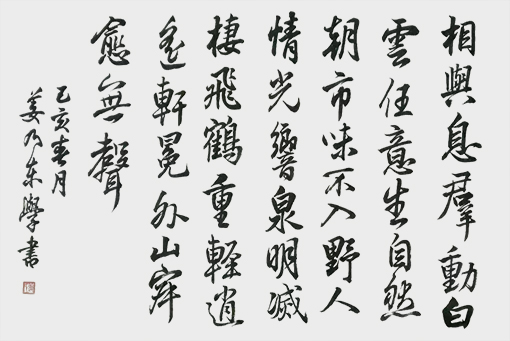 相與息群動白
雲任意生自然
朝市味不入野人
情光響泉明滅
棲飛鶴重輕逍
遙軒冕外山穽
愈無聲
乙亥春月
姜乃東學書